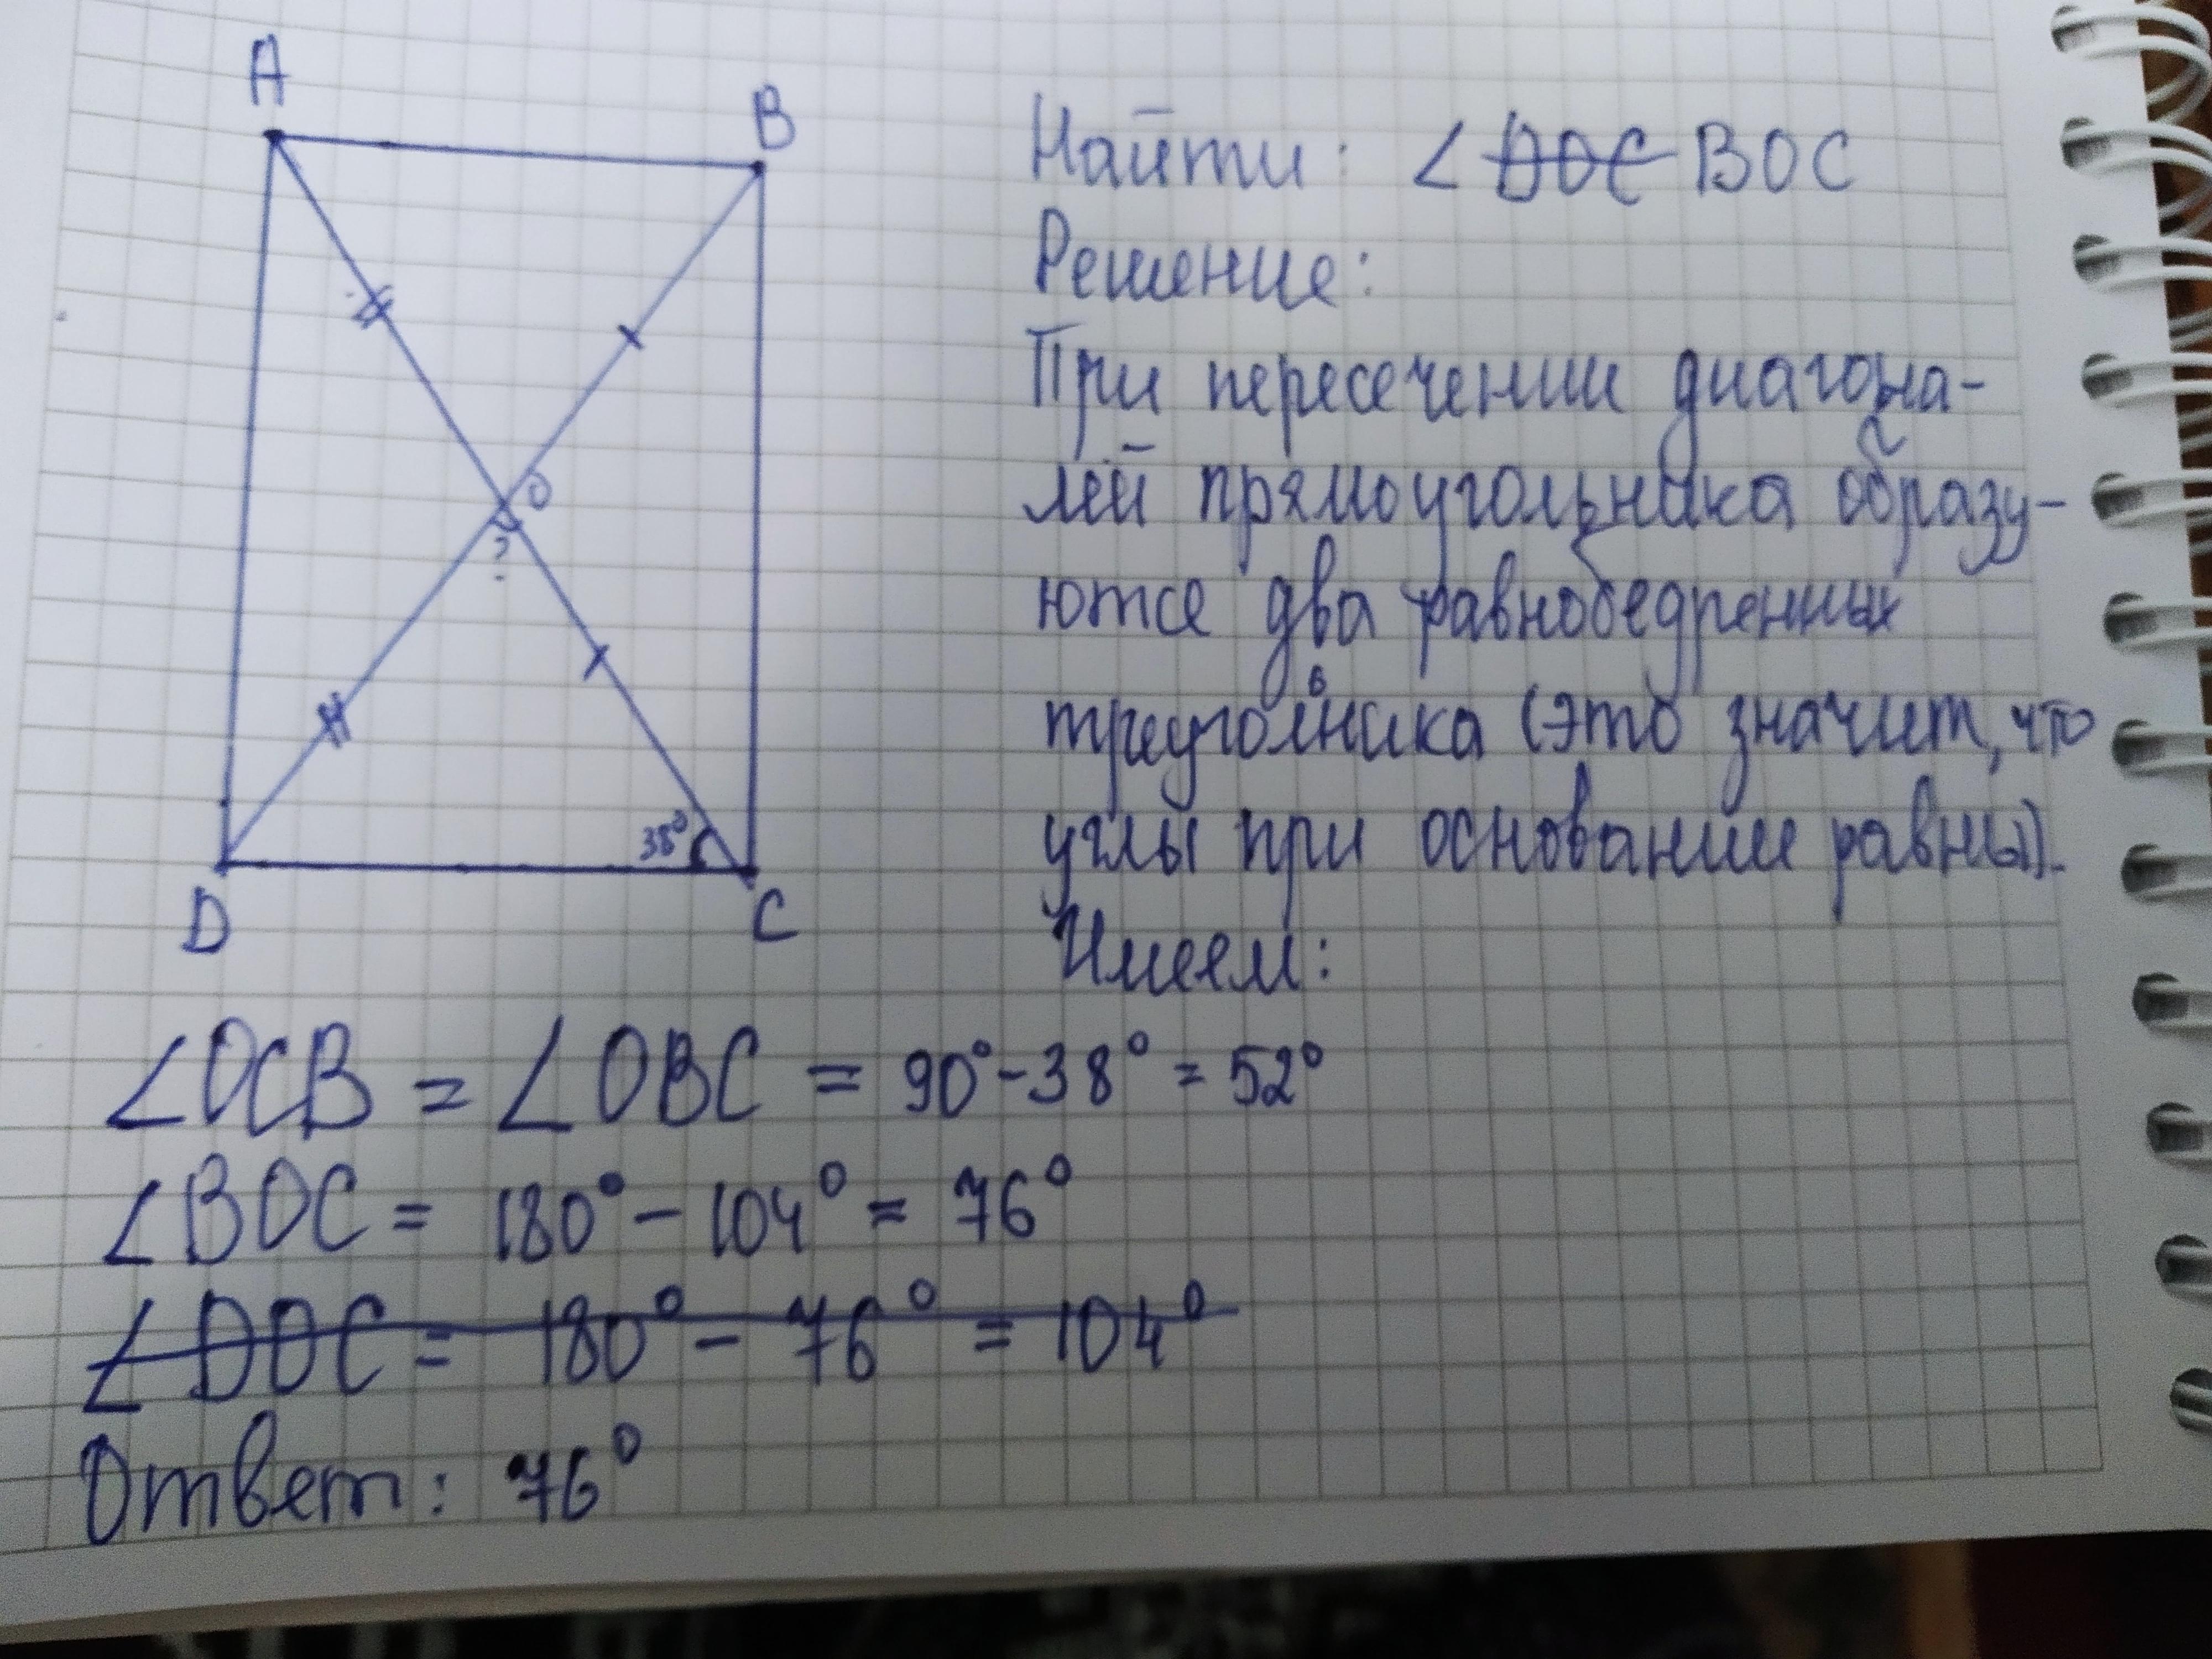 A
B
O
?
38°
D
C
Найти: ∠ DOC BOC
Решение:
При пересечении диагона-
лей прямоугольника образу-
ютсе два равнобедренных
треугольника (это значит, что
углы при основании равны).
Имеем:
∠OCB = ∠OBC = 90° - 38° = 52°
∠BOC = 180° - 104° = 76°
∠DOC = 180° - 76° = 104°
Ответ: 76°